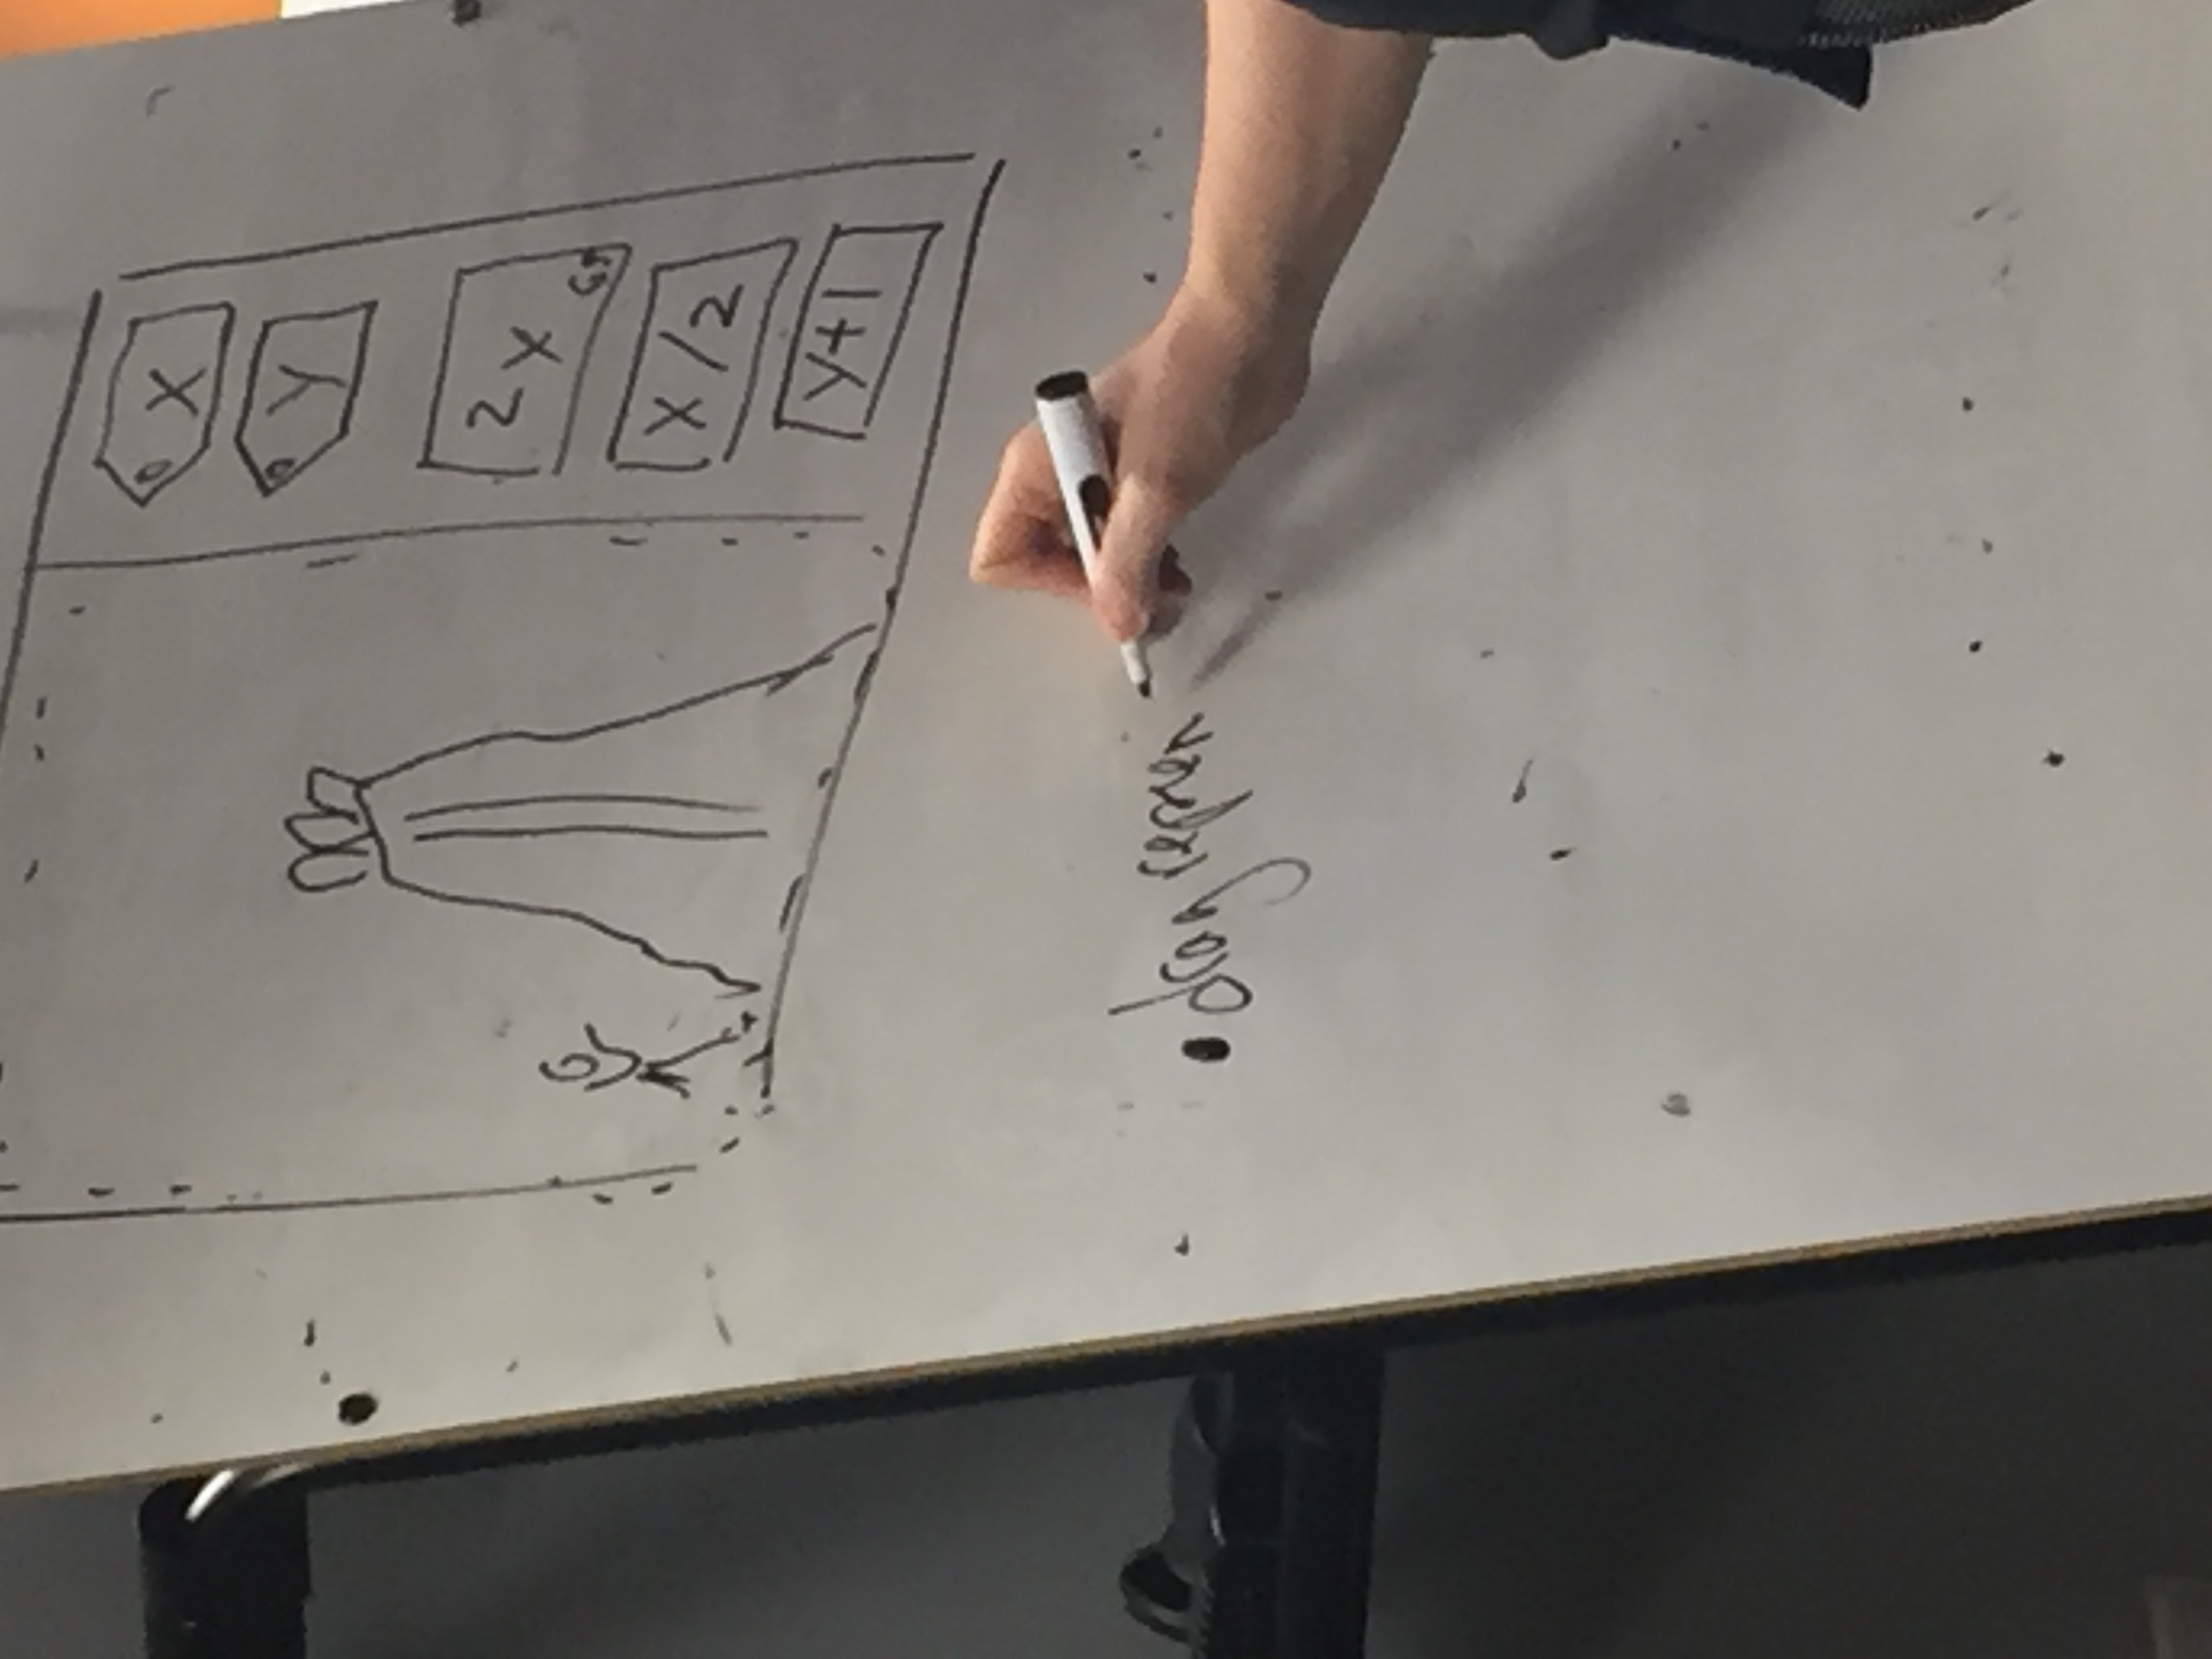 X
Y
2x
X/2
Y+1
• drag represen